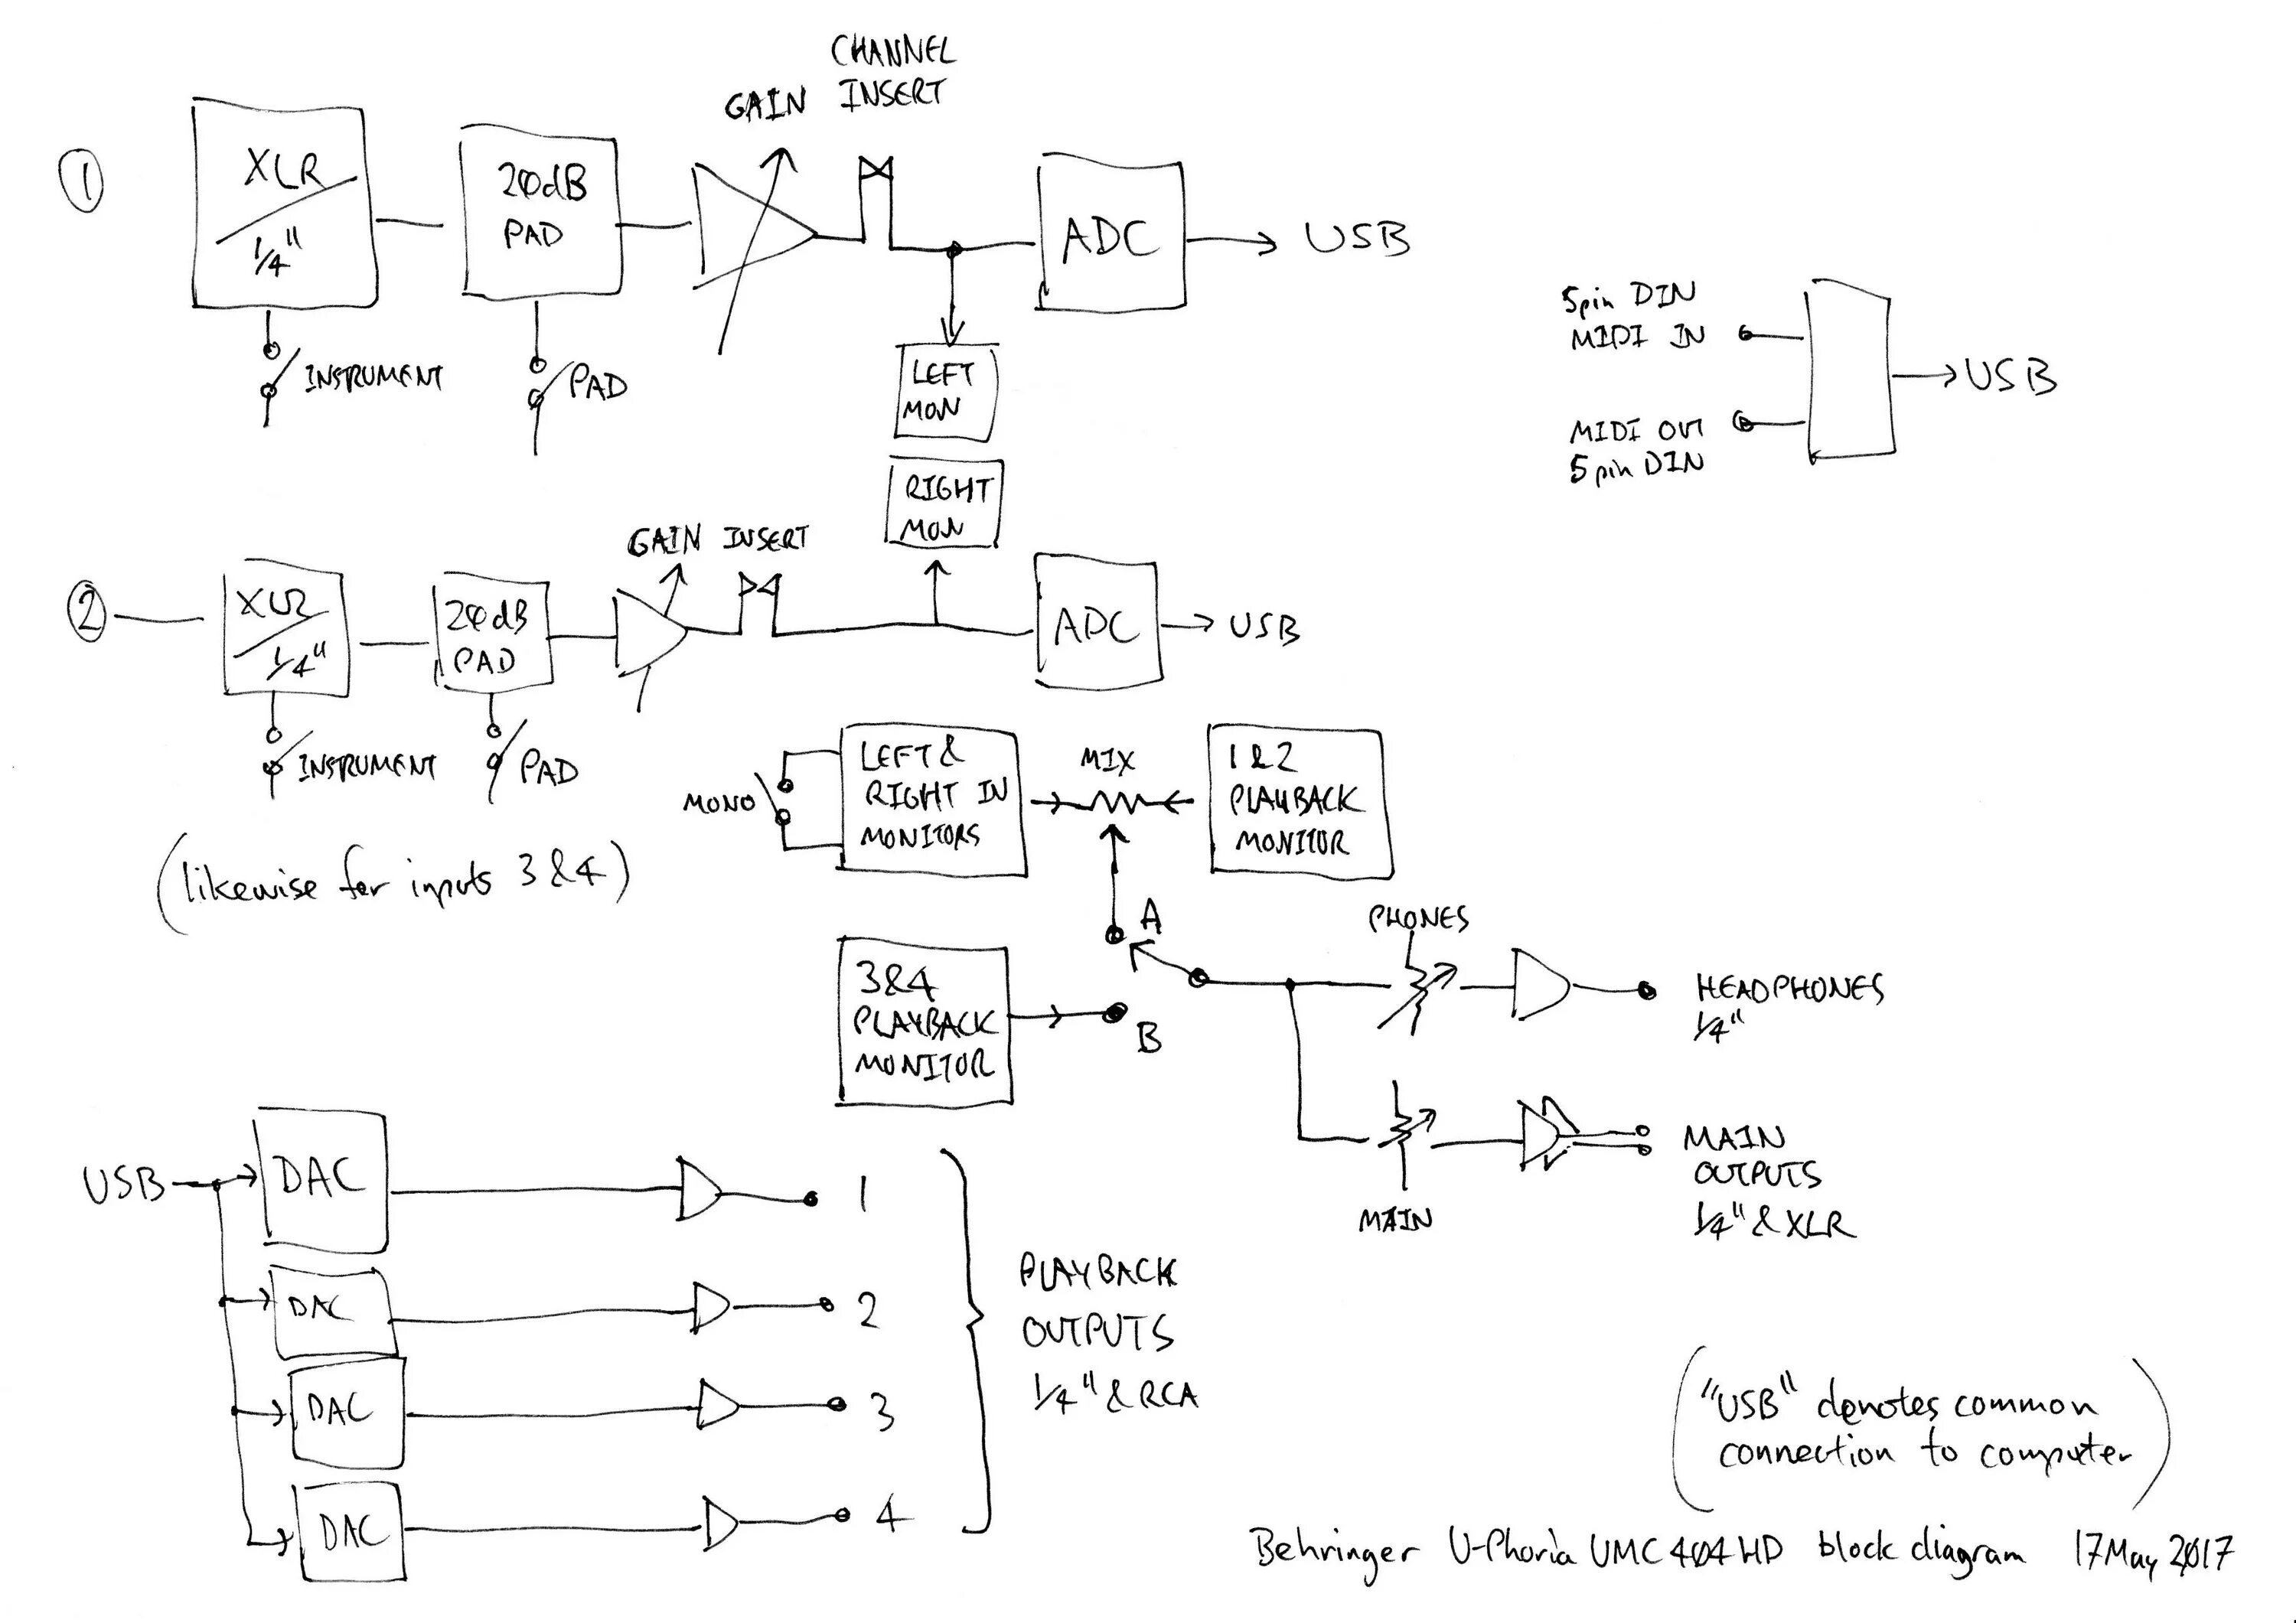 CHANNEL
GAIN INSERT
①
XLR
1/4"
20dB
PAD
ADC
USB
INSTRUMENT
PAD
LEFT
MON
RIGHT
MON
5pin DIN
MIDI IN
USB
MIDI OUT
5pin DIN
GAIN INSERT
②
XLR
1/4"
20dB
PAD
ADC
USB
INSTRUMENT
PAD
(likewise for inputs 3&4)
MONO
LEFT &
RIGHT IN
MONITORS
MIX
1&2
PLAYBACK
MONITOR
A
B
3&4
PLAYBACK
MONITOR
PHONES
HEADPHONES
1/4"
MAIN
MAIN
OUTPUTS
1/4" & XLR
USB
DAC
1
DAC
2
DAC
3
DAC
4
PLAYBACK
OUTPUTS
1/4" & RCA
("USB" denotes common
connection to computer)
Behringer U-Phoria UMC404HD block diagram 17May2017